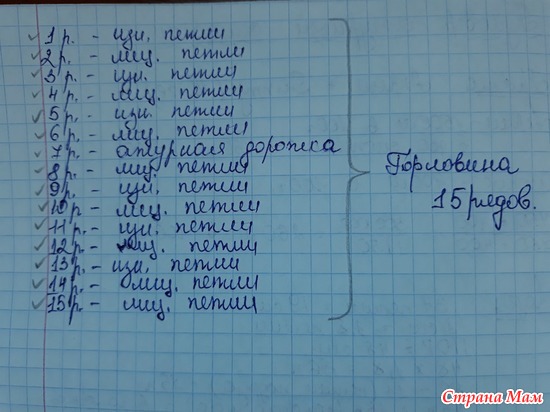 1 р. - изн. петли
2 р. - лиц. петли
3 р. - изн. петли
4 р. - лиц. петли
5 р. - изн. петли
6 р. - лиц. петли
7 р. - ажурная дорожка
8 р. - лиц. петли
9 р. - изн. петли
10 р. - лиц. петли
11 р. - изн. петли
12 р. - лиц. петли
13 р. - изн. петли
14 р. - лиц. петли
15 р. - лиц. петли
Горловина
15 рядов.
Страна Мам